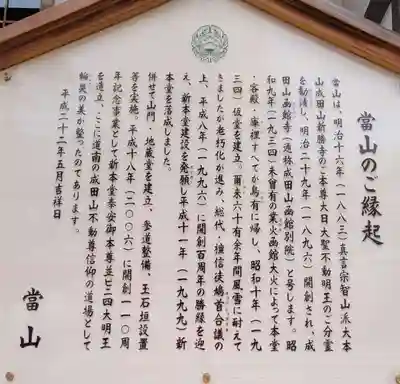 當山のご縁起
當山は、明治十六年(一八八三)真言宗智山派大本
山成田山新勝寺のご本尊大日大聖不動明王のご分霊
を勧請し、明治二十九年(一八九六)開創され、成
田山函館寺(通称成田山函館別院)と号します。昭
和九年(一九三四)未曾有の業火函館大火によって本堂
・客殿・庫裡すべてが烏有に帰し、昭和十年(一九
三四)仮堂を建立。爾来六十有余年間風雪に耐えて
きましたが老朽化が進み、総代、檀信徒鳩首合議の
上、平成八年(一九九六)に開創百周年の勝縁を迎
え、新本堂建設を発願し平成十一年(一九九九)新
本堂を落成しました。
併せて山門・地蔵堂を建立、参道整備、玉石垣設置
等を実施。平成十八年(二〇〇六)に開創一一〇周
年記念事業として新本堂泰安御本尊並ビニ四大明王
を造立、ここに道南の成田山不動尊信仰の道場として
輪奐の美が整ったのであります。
平成二十二年五月吉祥日
當山